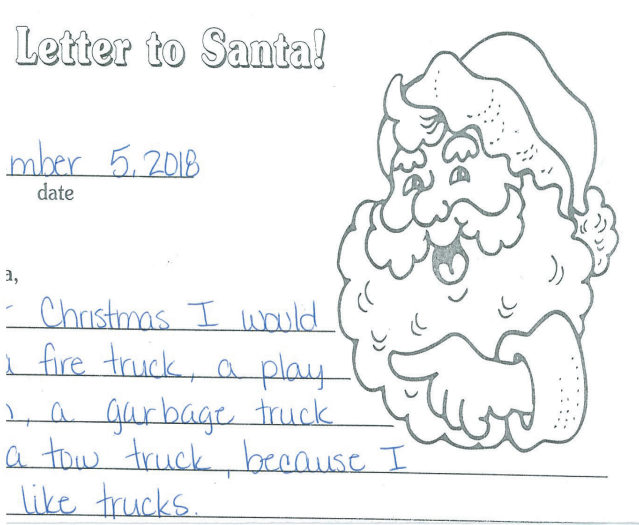 Letter to Santa!
mber 5, 2018
date
a,
Christmas I would
fire truck, a play
, a garbage truck
a tow truck, because I
like trucks.